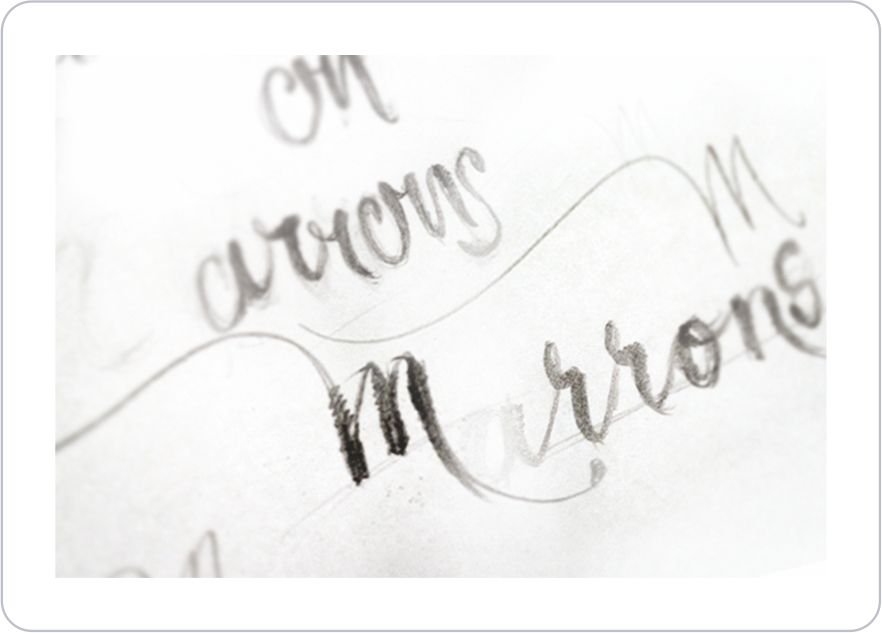 on
arrons
M
Marrons